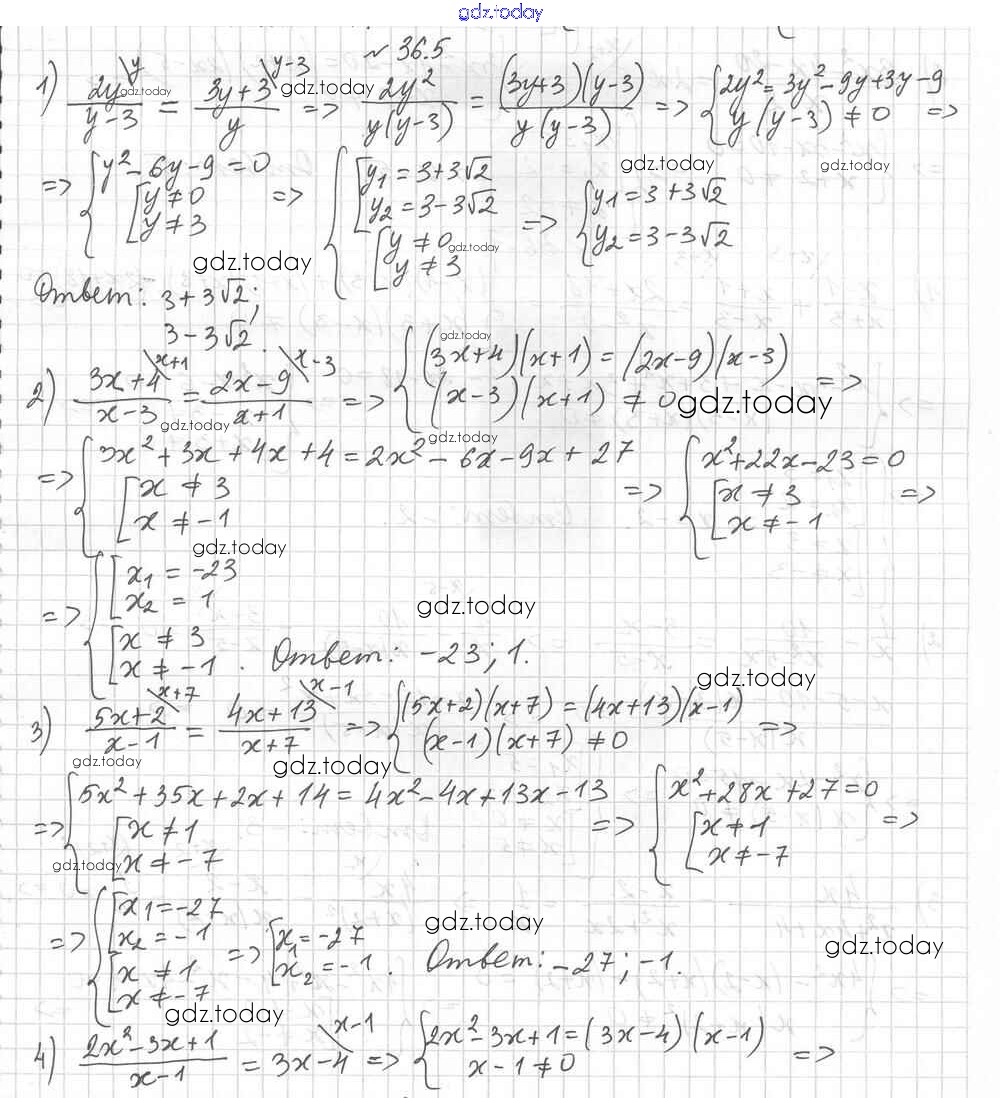 gdz.today
№ 36.5
1) 2y\y / (y-3) = 3y+3\y-3 / y => 2y² / y(y-3) = (3y+3)(y-3) / y(y-3) => { 2y² = 3y² - 9y + 3y - 9; y(y-3) ≠ 0 =>
gdz.today gdz.today
=> { y² - 6y - 9 = 0; [ y ≠ 0; y ≠ 3 => { [ y₁ = 3+3√2; y₂ = 3-3√2; [ y ≠ 0; y ≠ 3 => { y₁ = 3+3√2; y₂ = 3-3√2
gdz.today gdz.today
gdz.today gdz.today
Ответ: 3+3√2;
3-3√2.
2) 3x+4\x+1 / (x-3) = 2x-9\x-3 / (x+1) => { (3x+4)(x+1) = (2x-9)(x-3); (x-3)(x+1) ≠ 0 =>
gdz.today gdz.today gdz.today
=> { 3x² + 3x + 4x + 4 = 2x² - 6x - 9x + 27; [ x ≠ 3; x ≠ -1 => { x² + 22x - 23 = 0; [ x ≠ 3; x ≠ -1 =>
gdz.today
gdz.today
=> { [ x₁ = -23; x₂ = 1; [ x ≠ 3; x ≠ -1. Ответ: -23; 1.
gdz.today gdz.today
3) 5x+2\x+7 / (x-1) = 4x+13\x-1 / (x+7) => { (5x+2)(x+7) = (4x+13)(x-1); (x-1)(x+7) ≠ 0 =>
gdz.today gdz.today
=> { 5x² + 35x + 2x + 14 = 4x² - 4x + 13x - 13; [ x ≠ 1; x ≠ -7 => { x² + 28x + 27 = 0; [ x ≠ 1; x ≠ -7 =>
gdz.today
=> { [ x₁ = -27; x₂ = -1; [ x ≠ 1; x ≠ -7 => [ x₁ = -27; x₂ = -1. Ответ: -27; -1.
gdz.today gdz.today
gdz.today
4) 2x²-3x+1 / (x-1) = 3x-4\x-1 => { 2x² - 3x + 1 = (3x-4)(x-1); x-1 ≠ 0 =>